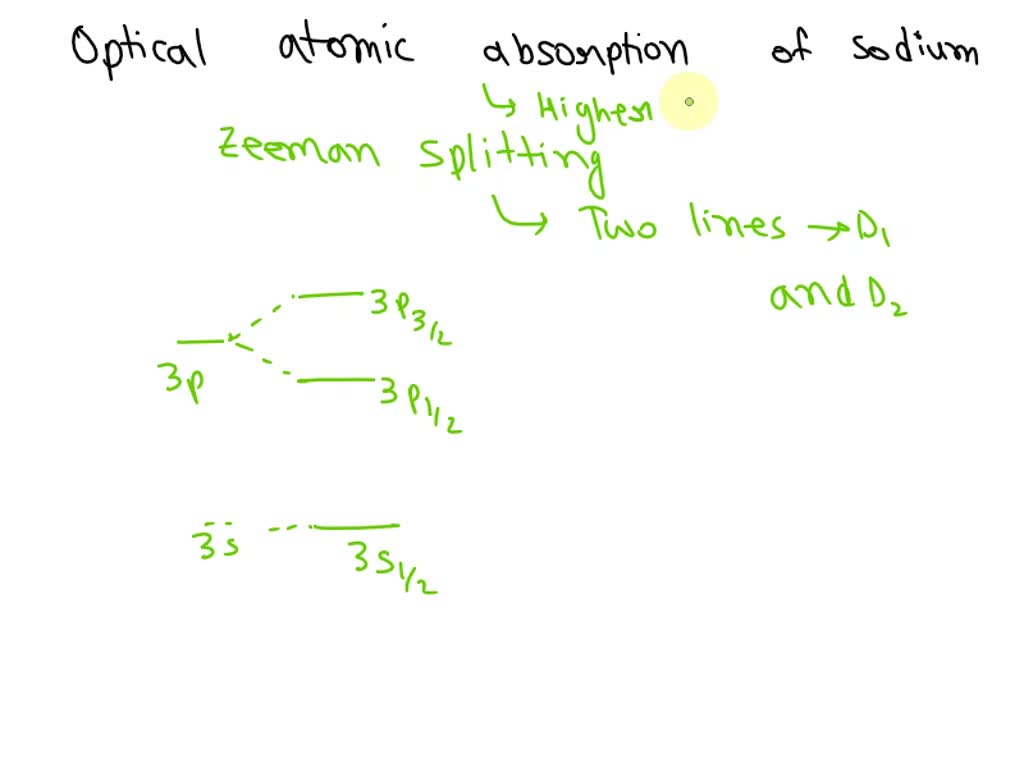 Optical atomic absorption of sodium
↳ Higher
Zeeman splitting
↳ Two lines → D₁
and D₂
3P₃/₂
3p
3P₁/₂
3s
3S₁/₂